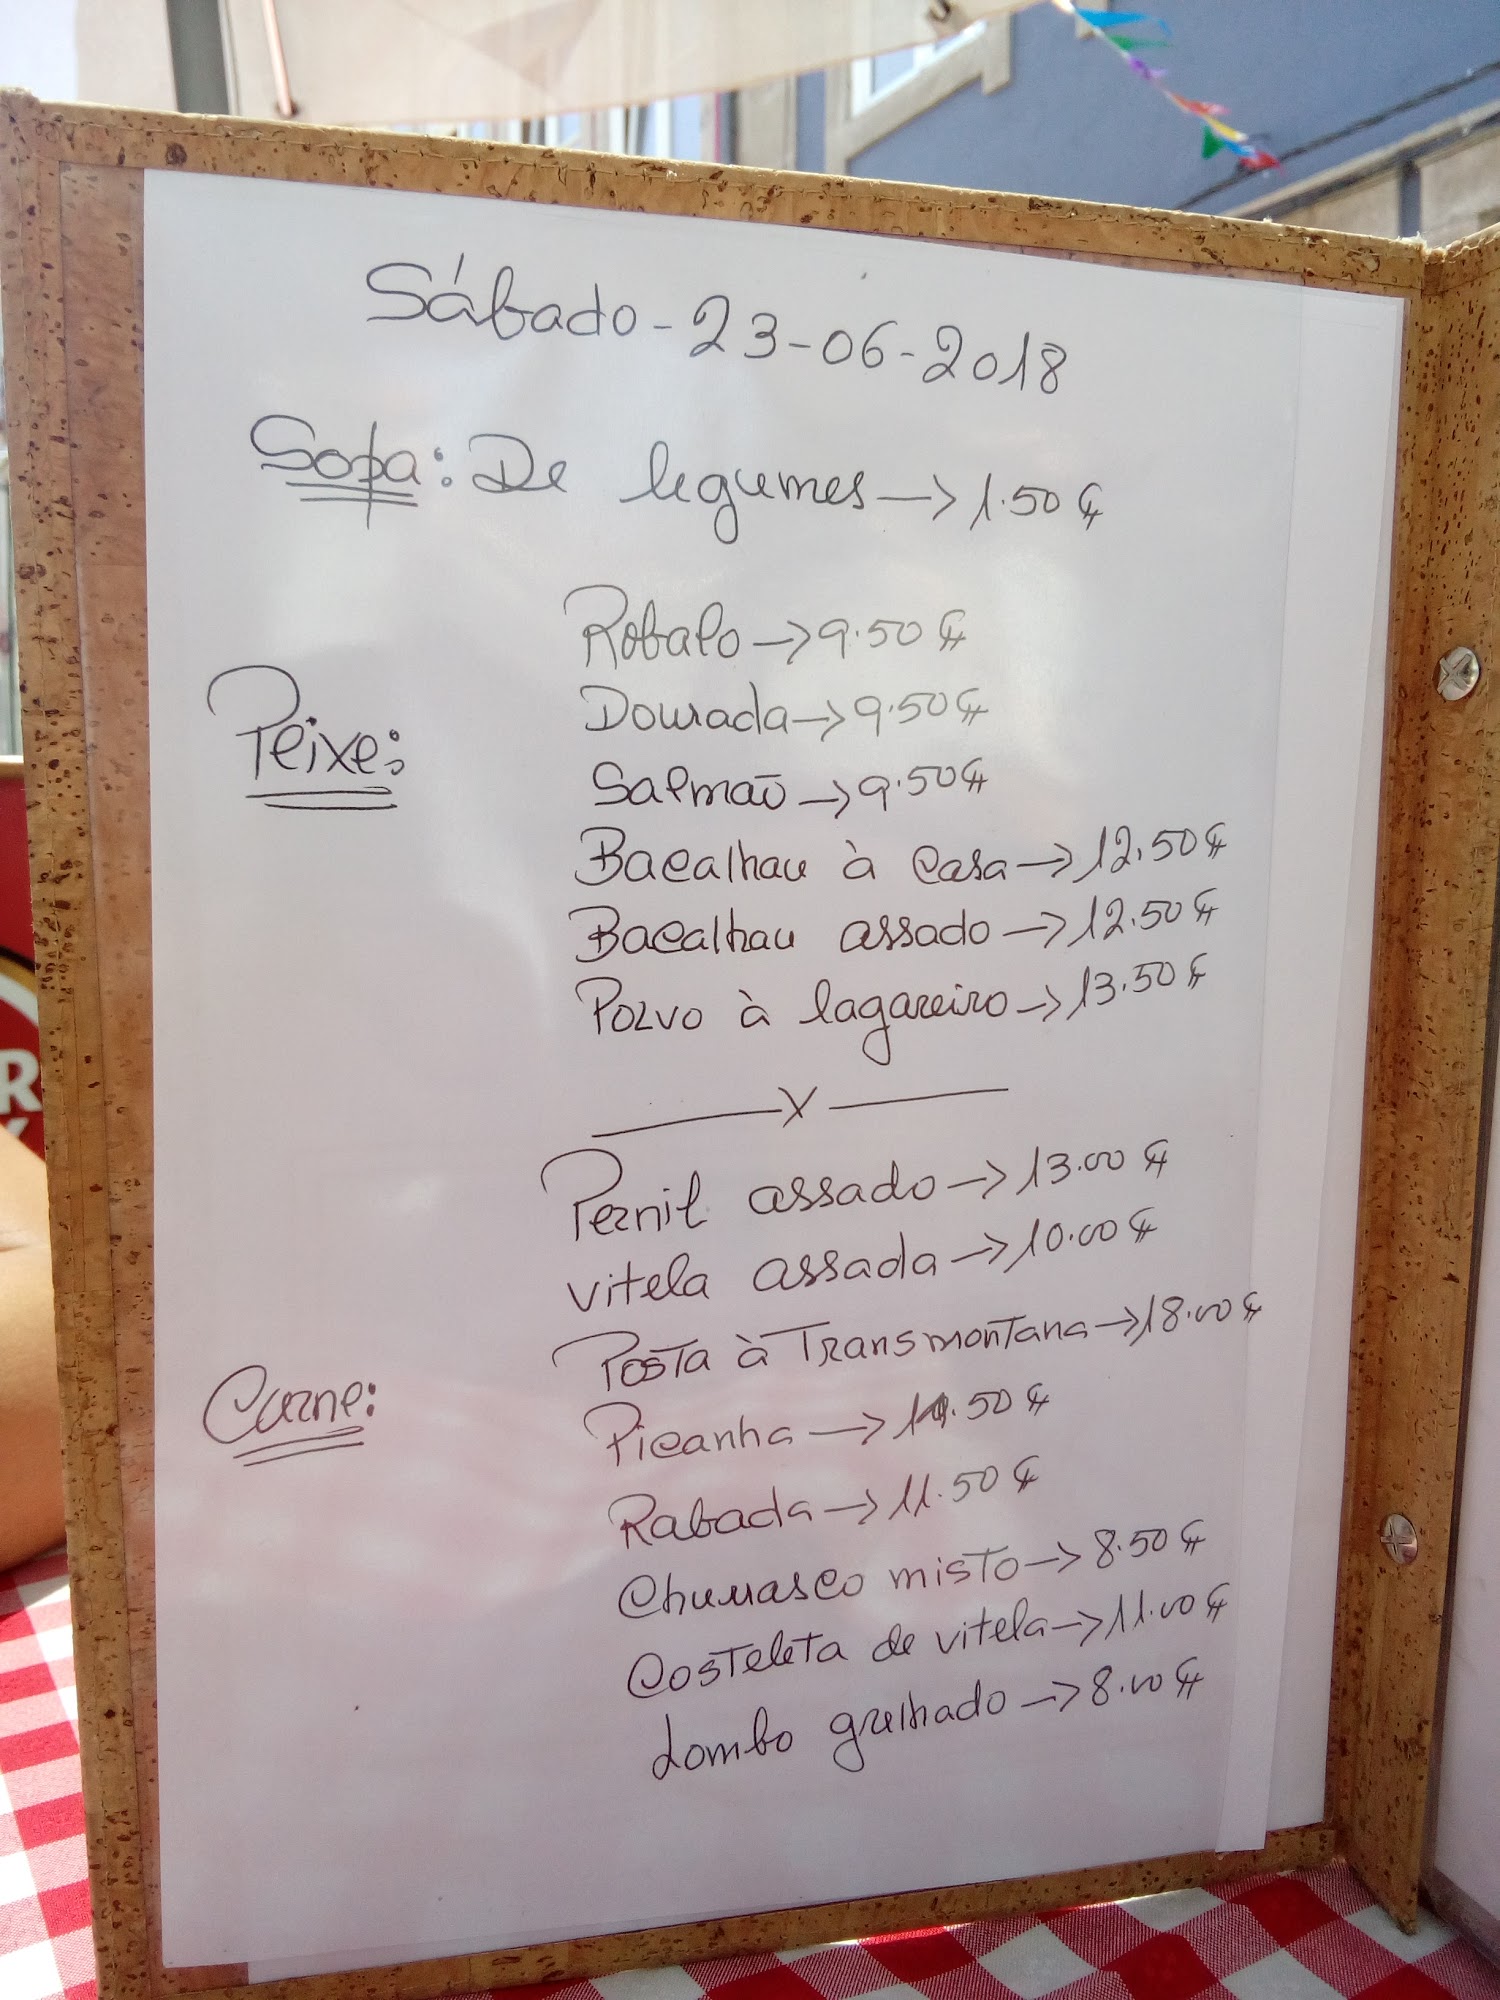 Sábado - 23-06-2018
Sopa: De legumes → 1.50 €
Peixe:
Robalo → 9.50 €
Dourada → 9.50 €
Salmão → 9.50 €
Bacalhau à casa → 12.50 €
Bacalhau assado → 12.50 €
Polvo à lagareiro → 13.50 €
X
Carne:
Pernil assado → 13.00 €
Vitela assada → 10.00 €
Posta à Transmontana → 18.00 €
Picanha → .50 €
Rabada → 11.50 €
Churrasco misto → 8.50 €
Costeleta de vitela → 11.00 €
Lombo grelhado → 8.00 €
R